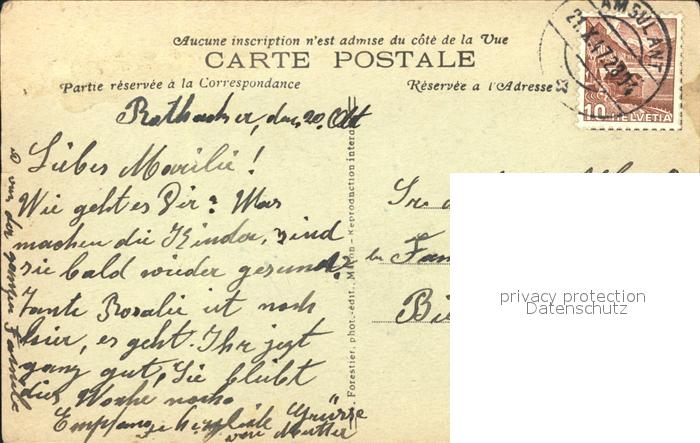 Aucune inscription n'est admise du côté de la Vue
CARTE POSTALE
Partie réservée à la Correspondance
Réservée à l'Adresse
10 HELVETIA
den 20. Okt
Liebes Marilie!
Wie geht es Dir? Was
machen die Kinder, sind
sie bald wieder gesund?
Tante Rosalie ist noch
hier, es geht Ihr jezt
ganz gut, Sie bleibt
dies Woche noch.
Empfange herzliche Grüsse
von Mutter
u von der ganzen Familie
Forestier, phot.-édit., Reproduction interd
privacy protection
Datenschutz